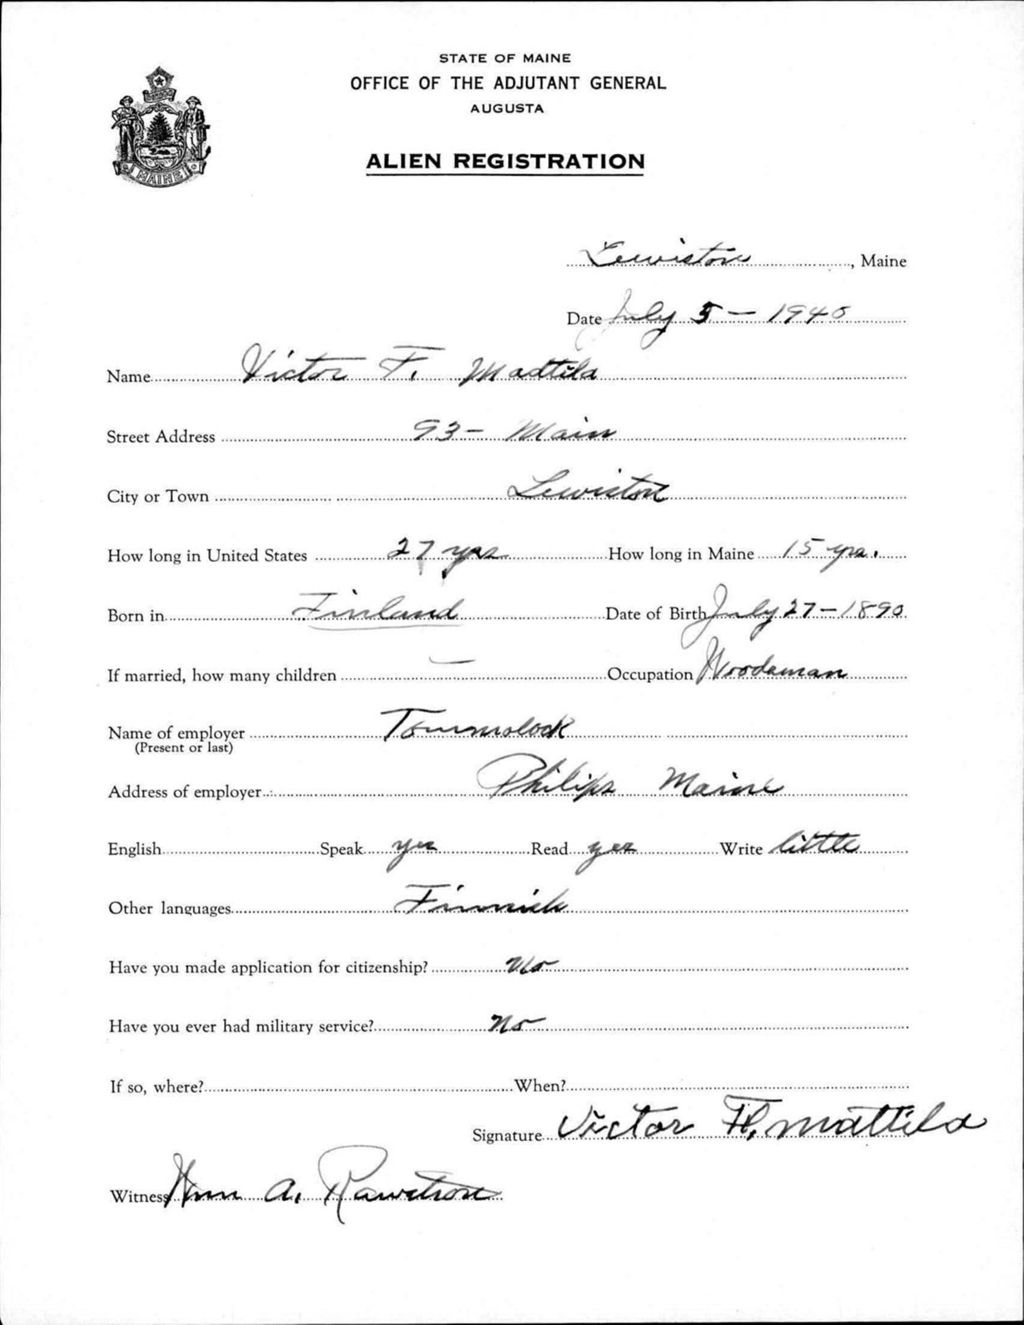 STATE OF MAINE
OFFICE OF THE ADJUTANT GENERAL
AUGUSTA
ALIEN REGISTRATION
MAINE
Lewiston, Maine
Date July 5 - 1940
Name Victor F. Mattila
Street Address 93 - Main
City or Town Lewiston
How long in United States 27 yrs How long in Maine 15 yrs.
Born in Finland Date of Birth July 27 - 1890
If married, how many children — Occupation Woodsman
Name of employer
(Present or last)
Address of employer Philips Maine
English Speak yes Read yes Write little
Other languages Finnish
Have you made application for citizenship? No
Have you ever had military service? No
If so, where? When?
Signature Victor F. Mattila
Witness A.